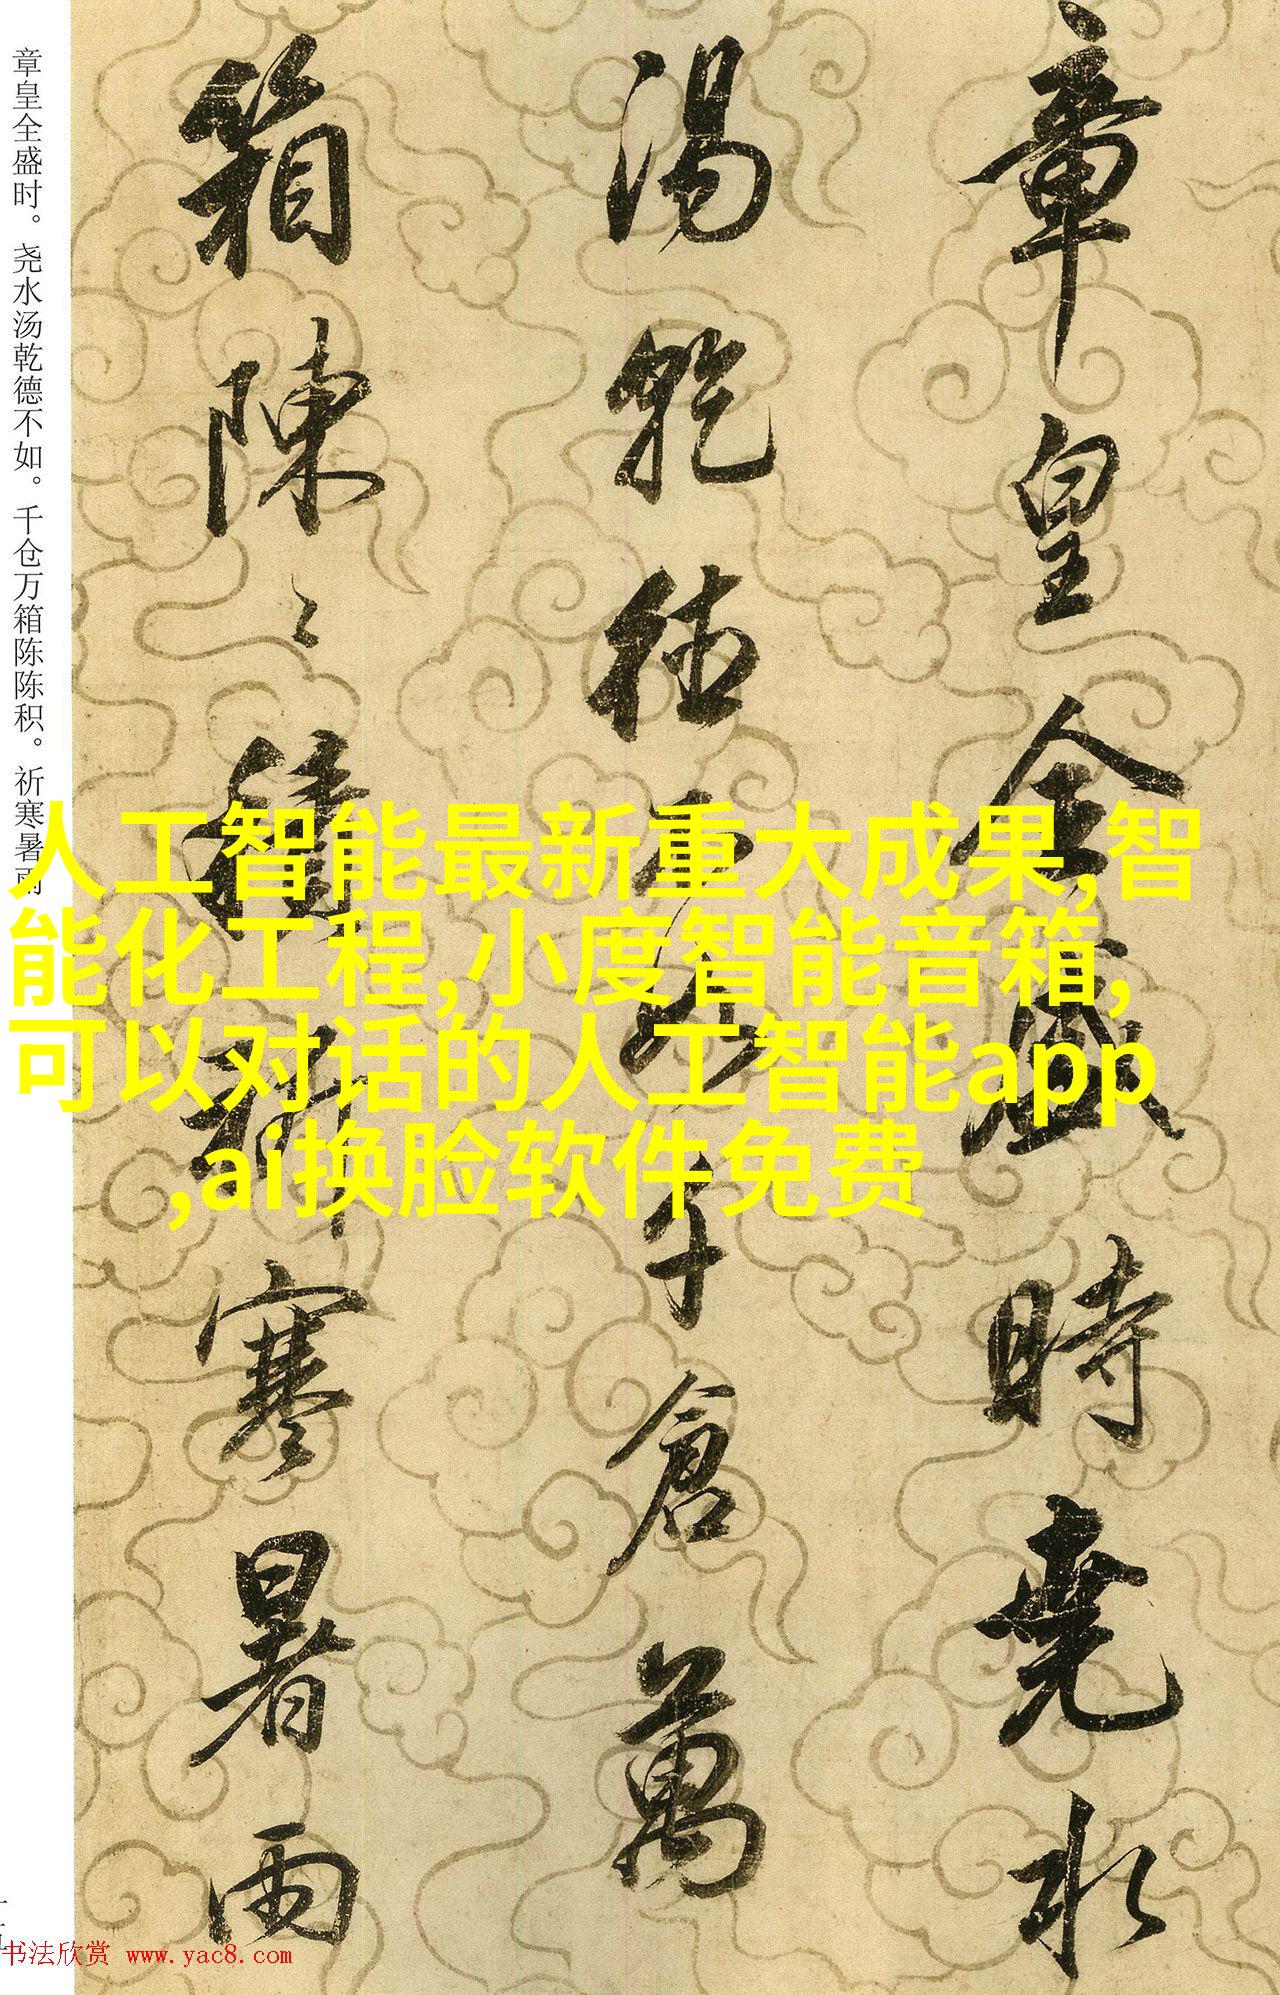 章皇全盛时。尧水汤乾德不如。千仓万箱陈陈积。祈寒暑雨
章皇全盛時堯水
湯乾德不如千倉萬
箱陳〻積祈寒暑雨
人工智能最新重大成果,智
能化工程,小度智能音箱,
可以对话的人工智能app
,ai换脸软件免费
书法欣赏 www.yac8.com